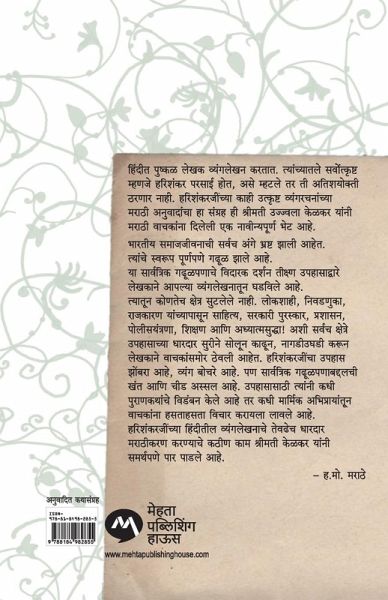 हिंदीत पुष्कळ लेखक व्यंगलेखन करतात. त्यांच्यातले सर्वोत्कृष्ट
म्हणजे हरिशंकर परसाई होत, असे म्हटले तर ती अतिशयोक्ती
ठरणार नाही. हरिशंकरजींच्या काही उत्कृष्ट व्यंगरचनांच्या
मराठी अनुवादांचा हा संग्रह ही श्रीमती उज्ज्वला केळकर यांनी
मराठी वाचकांना दिलेली एक नावीन्यपूर्ण भेट आहे.
भारतीय समाजजीवनाची सर्वच अंगे भ्रष्ट झाली आहेत.
त्यांचे स्वरूप पूर्णपणे गढूळ झाले आहे.
या सार्वत्रिक गढूळपणाचे विदारक दर्शन तीक्ष्ण उपहासाद्वारे
लेखकाने आपल्या व्यंगलेखनातून घडविले आहे.
त्यातून कोणतेच क्षेत्र सुटलेले नाही. लोकशाही, निवडणुका,
राजकारण यांच्यापासून साहित्य, सरकारी पुरस्कार, प्रशासन,
पोलीसयंत्रणा, शिक्षण आणि अध्यात्मसुद्धा! अशी सर्वच क्षेत्रे
उपहासाच्या धारदार सुरीने सोलून काढून, नागडीउघडी करून
लेखकाने वाचकांसमोर ठेवली आहेत. हरिशंकरजींचा उपहास
झोंबरा आहे, व्यंग बोचरे आहे. पण सार्वत्रिक गढूळपणाबद्दलची
खंत आणि चीड अस्सल आहे. उपहासासाठी त्यांनी कधी
पुराणकथांचे विडंबन केले आहे तर कधी मार्मिक अभिप्रायांतून
वाचकांना हसताहसता विचार करायला लावले आहे.
हरिशंकरजींच्या हिंदीतील व्यंगलेखनाचे तेवढेच धारदार
मराठीकरण करण्याचे कठीण काम श्रीमती केळकर यांनी
समर्थपणे पार पाडले आहे.
– ह.मो. मराठे
अनुवादित कथासंग्रह
ISBN-
978-81-8498-285-5
9 788184 982855
मेहता
पब्लिशिंग
हाऊस
www.mehtapublishinghouse.com